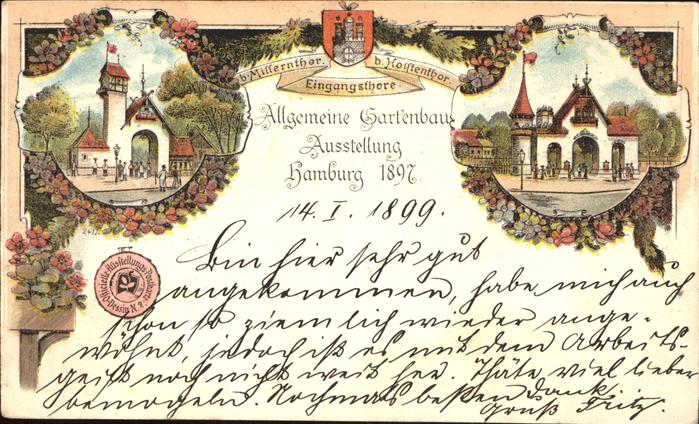 b. Millernthor.
b. Holstenthor.
Eingangsthore
Allgemeine Gartenbau
Ausstellung
Hamburg 1897.
14. I. 1899.
Bin hier sehr gut
angekommen, habe mich auch
schon so ziemlich wieder ange-
wöhnt, jedoch ist es mit dem Arbeits-
geist noch nicht weit her. Thäte viel lieber
bemogeln. Nochmals besten Dank.
Gruß Fritz.
2411
Officielle Ausstellungs-Postkarte
Dessin N. 2